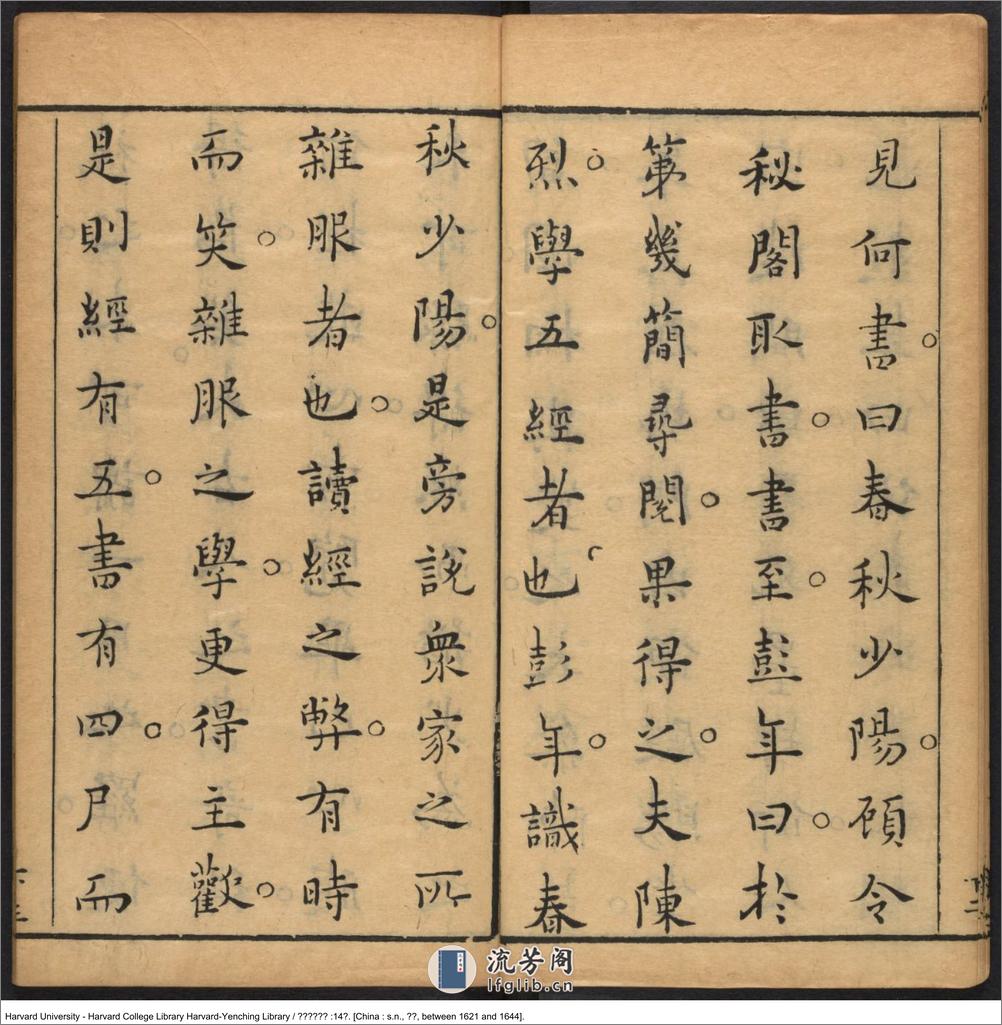 見何書曰春秋少陽顧令
秘閣取書書至彭年曰於
第幾簡尋閱果得之夫陳
烈學五經者也彭年識春
秋少陽是旁說衆家之所
雜服者也讀經之弊有時
而笑雜服之學更得主歡
是則經有五書有四尸而
流芳阁
lfglib.cn
Harvard University - Harvard College Library Harvard-Yenching Library / ?????? :14?. [China : s.n., ??, between 1621 and 1644].